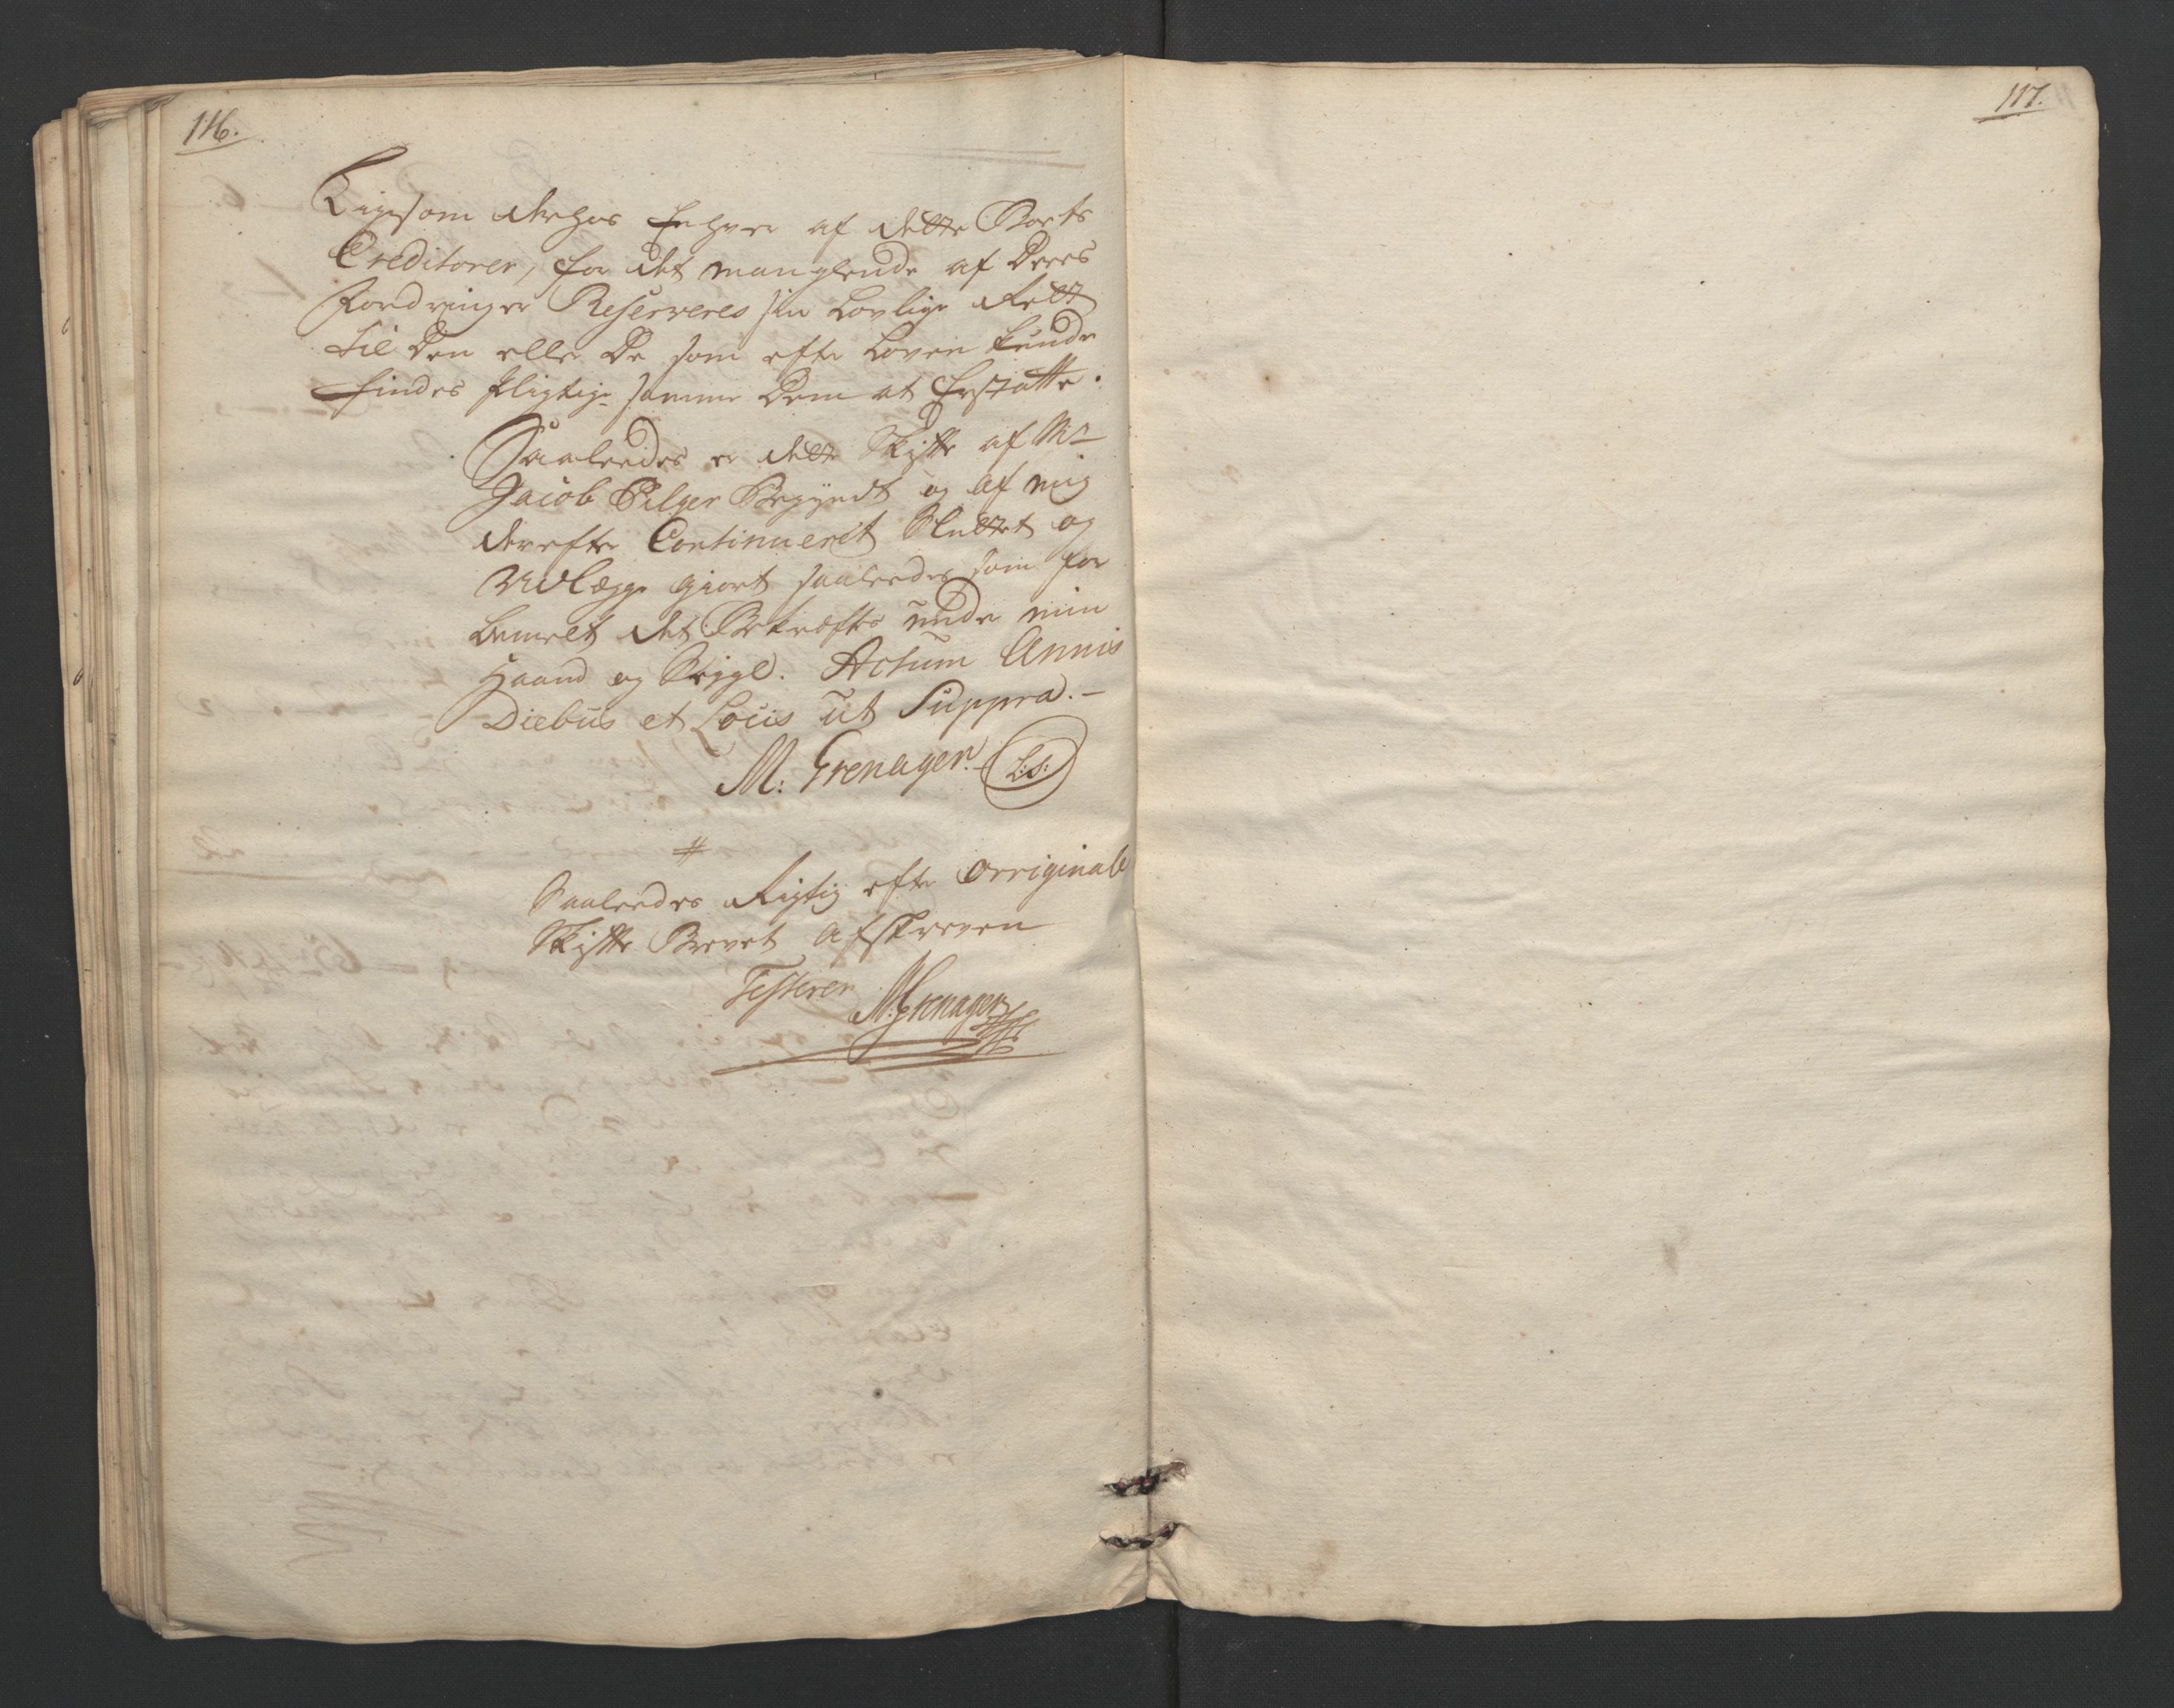 116.
Ligesom derhos Enhver af dette Boets
Creditorer, for det manglende af Deres
Fordringer Reserveres sin Lovlige Rett
til Den eller De som efter Loven kunde
findes pligtige samme Dem at Erstatte.
Saaleedes er dette Skifte af Sr
Jacob Pilger Begyndt og af mig
derefter Continuerit Sluttet og
Udlægge giort saaleedes som for
bemelt det Bekræftes under min
Haand og Seigl. Actum Annis
Diebus et Locis ut Suppra. -
M: Grenager. L:S:
#
Saaleedes Rigtig efter Orriginale
Skifte Brevet Afskreven
Testerer
M: Grenager
117.